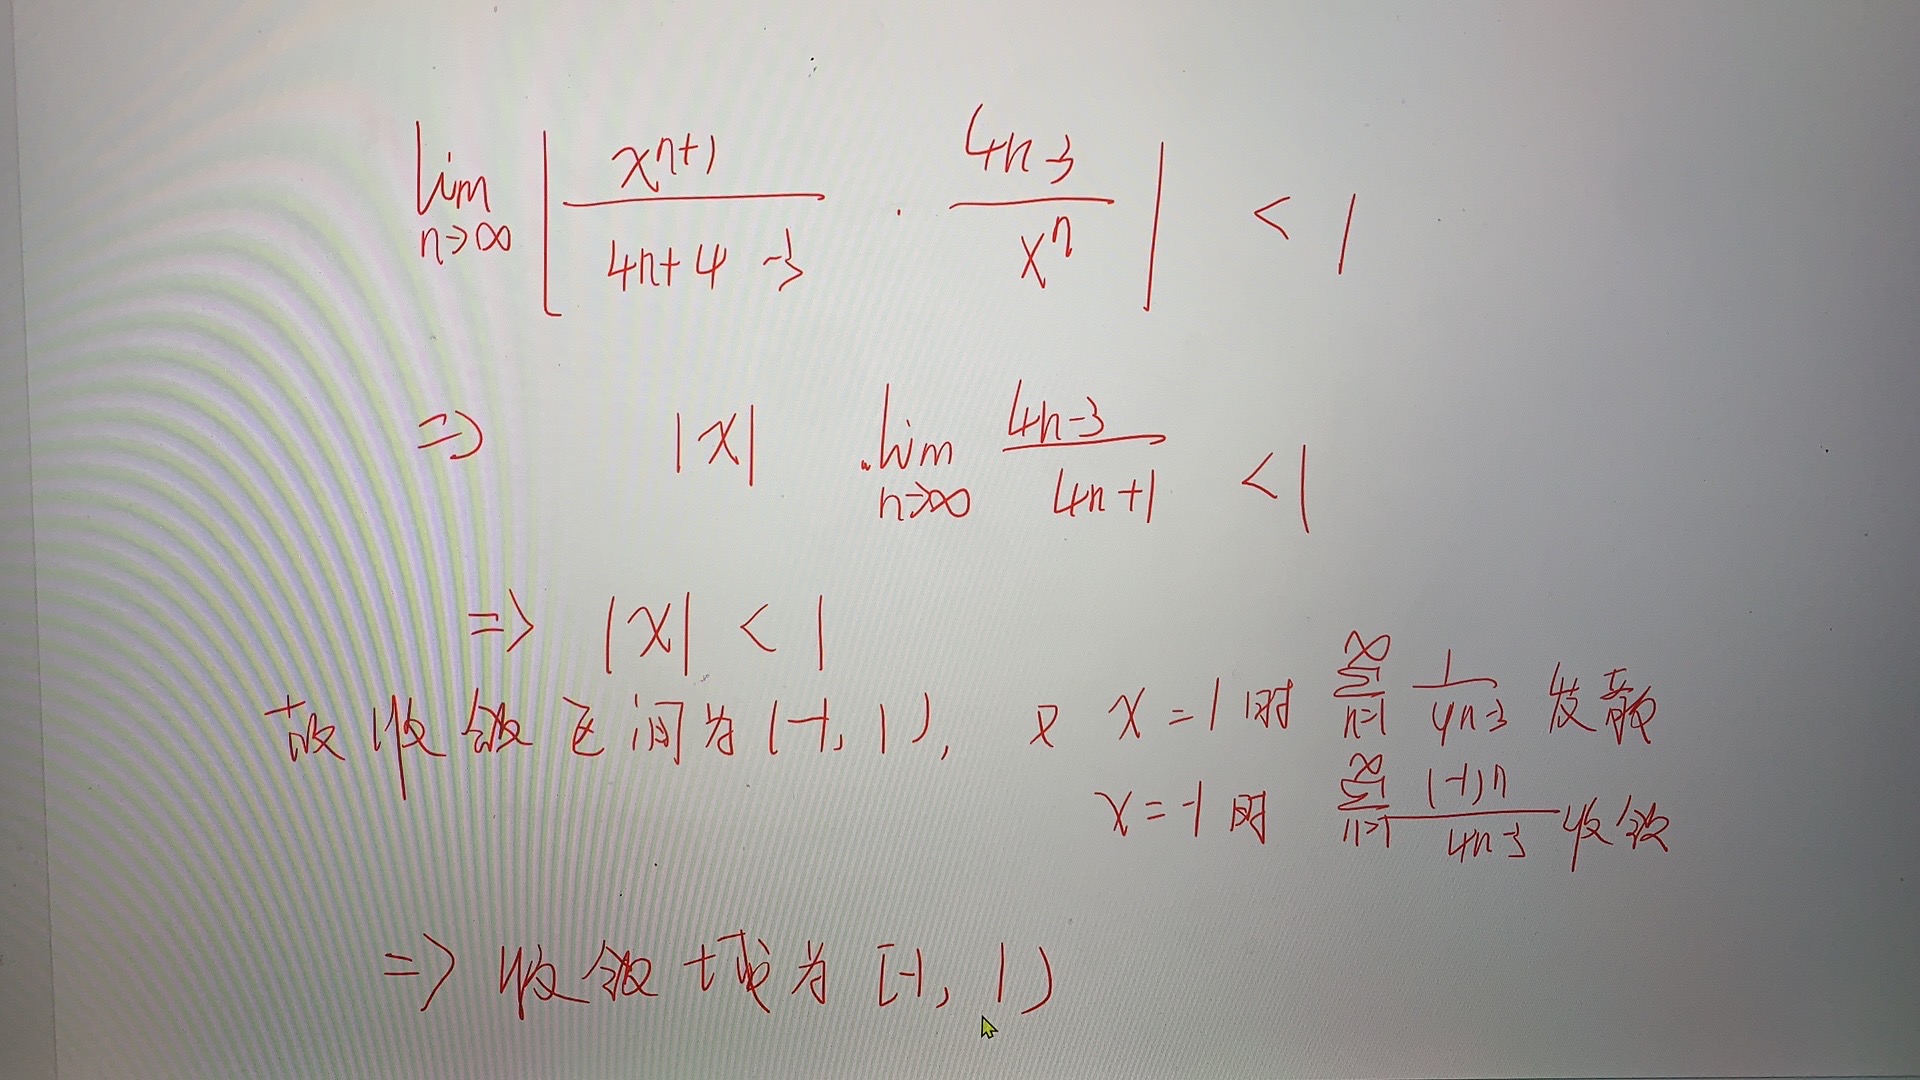 lim n→∞ | x^{n+1} / (4n+4-3) · (4n-3) / x^n | < 1
=> |x| · lim n→∞ (4n-3) / (4n+1) < 1
=> |x| < 1
故收敛区间为 (-1, 1), 又 x=1时 ∑_{n=1}^{∞} 1/(4n-3) 发散
x=-1时 ∑_{n=1}^{∞} (-1)^n/(4n-3) 收敛
=> 收敛域为 [-1, 1)